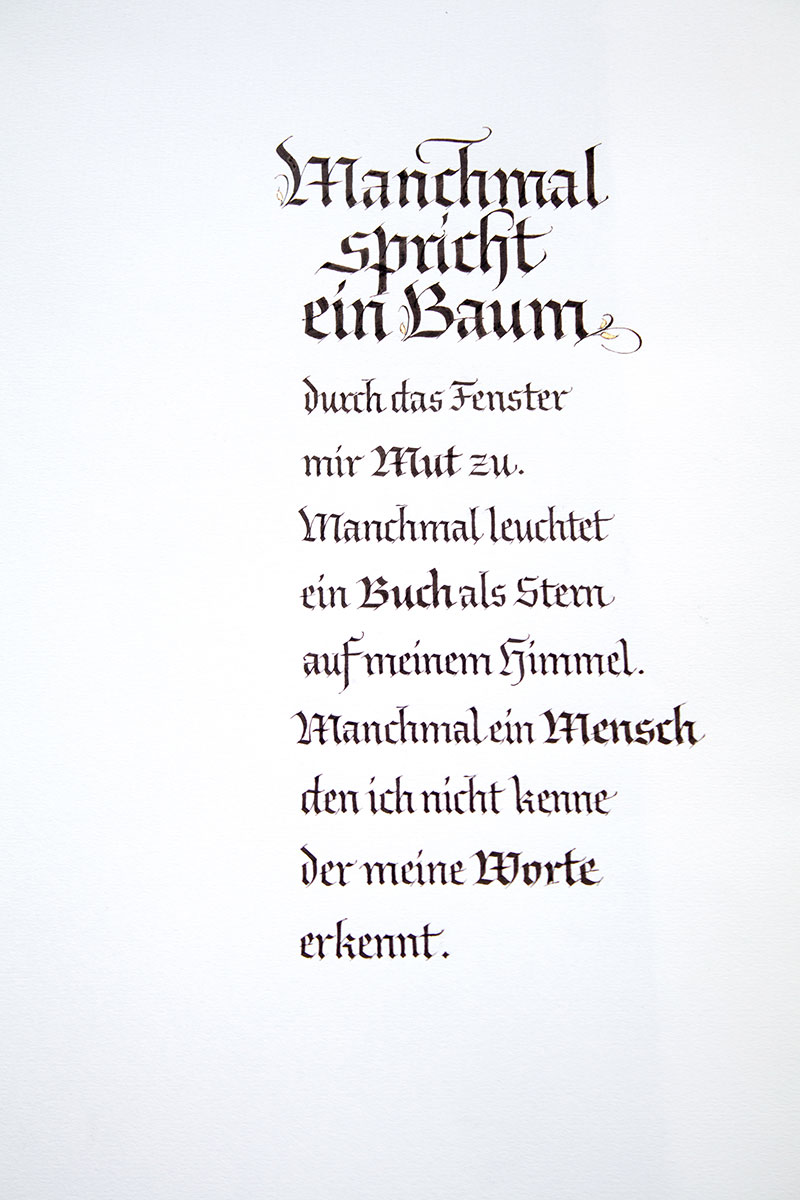 Manchmal
spricht
ein Baum
durch das Fenster
mir Mut zu.
Manchmal leuchtet
ein Buch als Stern
auf meinem Himmel.
Manchmal ein Mensch
den ich nicht kenne
der meine Worte
erkennt.